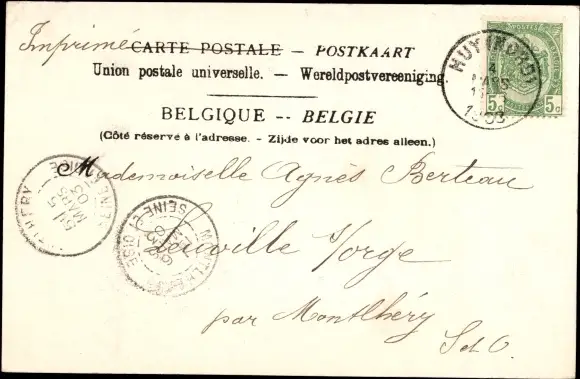 Imprimé CARTE POSTALE — POSTKAART
Union postale universelle. — Wereldpostvereeniging.
BELGIQUE -- BELGIE
(Côté réservé à l'adresse. - Zijde voor het adres alleen.)
Mademoiselle Agnès Berteau
Leuville s/orge
par Montlhéry
S et O.
HUY (NORD)
4
MARS
1903
5c 5c
5
MARS
03
SEINE-ET-OISE